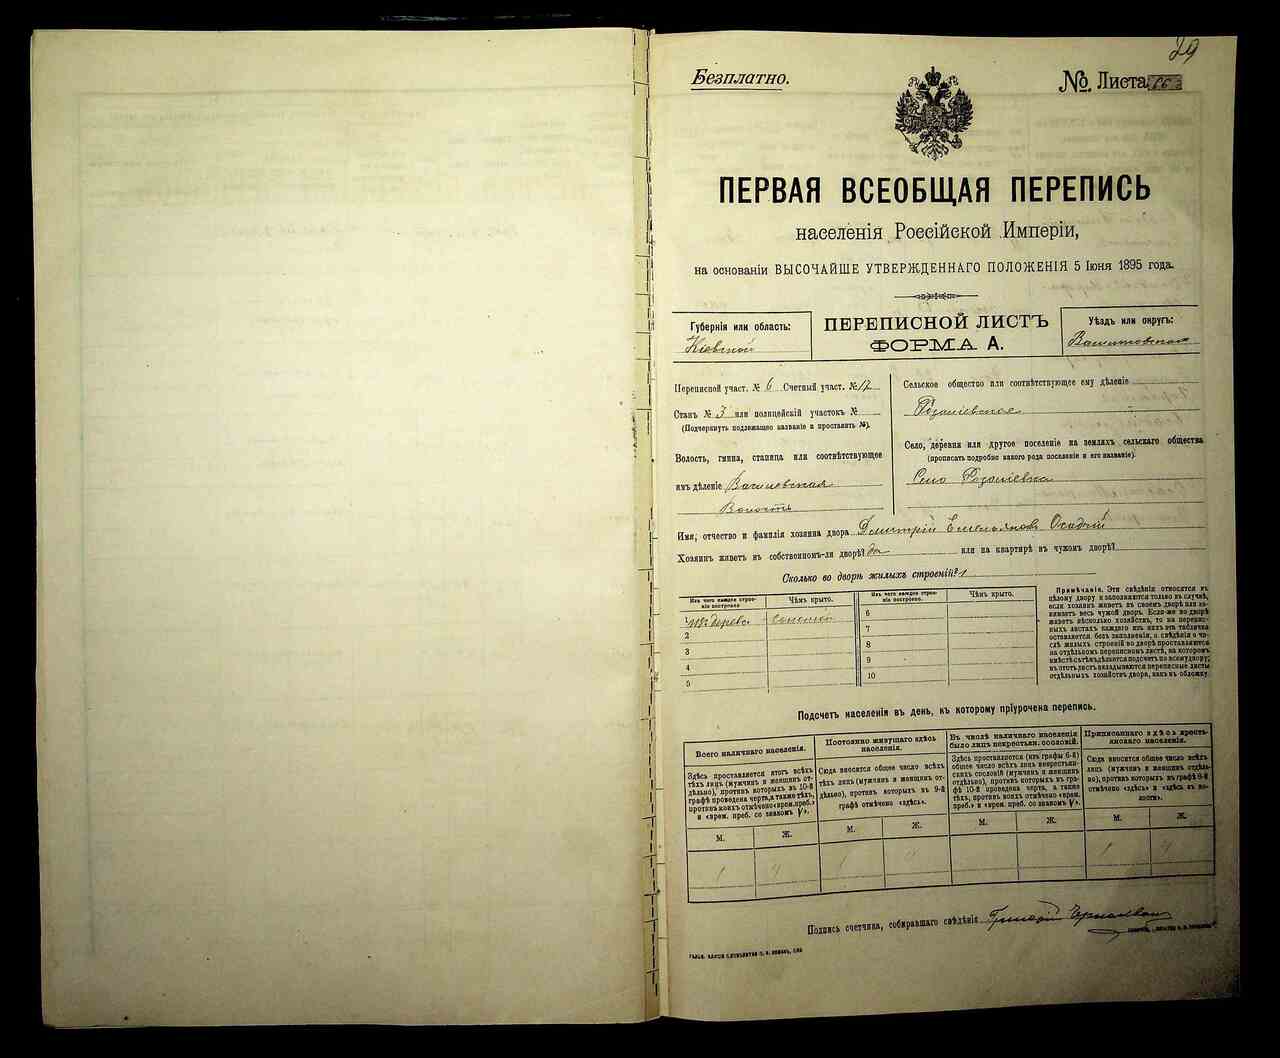 29
Безплатно.
№ Листа
ПЕРВАЯ ВСЕОБЩАЯ ПЕРЕПИСЬ
населенія Россійской Имперіи,
на основаніи ВЫСОЧАЙШЕ УТВЕРЖДЕННАГО ПОЛОЖЕНІЯ 5 Іюня 1895 года.
Губернія или область:
Кіевской
ПЕРЕПИСНОЙ ЛИСТЪ
ФОРМА А.
Уѣздъ или округъ:
Переписной участ. № 6 Счетный участ. № 12
Станъ № 3 или полицейскій участокъ №
(Подчеркнуть подлежащее названіе и проставить №).
Волость, гмина, станица или соотвѣтствующее
имъ дѣленіе
Волость
Сельское общество или соотвѣтствующее ему дѣленіе
Село, деревня или другое поселеніе на земляхъ сельскаго общества
(прописать подробно какого рода поселеніе и его названіе).
Село
Имя, отчество и фамилія хозяина двора Дмитрій Емельяновъ Осадчій
Хозяинъ живетъ въ собственномъ-ли дворѣ? да или на квартирѣ въ чужомъ дворѣ?
Сколько во дворѣ жилыхъ строеній? 1
Изъ чего каждое строе-
ніе построено
Чѣмъ крыто.
Изъ чего каждое строе-
ніе построено.
Чѣмъ крыто.
изъ дерева соломой
2
3
4
5
6
7
8
9
10
Примѣчаніе. Эти свѣдѣнія относятся къ
цѣлому двору и заполняются только въ случаѣ,
если хозяинъ живетъ въ своемъ дворѣ или за-
нимаетъ весь чужой дворъ. Если-же во дворѣ
живетъ нѣсколько хозяйствъ, то на перепис-
ныхъ листахъ каждаго изъ нихъ эта табличка
оставляется безъ заполненія, а свѣдѣнія о чи-
слѣ жилыхъ строеній во дворѣ проставляются
на отдѣльномъ переписномъ листѣ, на которомъ
вмѣстѣ съ тѣмъ дѣлается подсчетъ по всему двору;
въ этотъ листъ вкладываются переписные листы
отдѣльныхъ хозяйствъ двора, какъ въ обложку.
Подсчетъ населенія въ день, къ которому пріурочена перепись.
Всего наличнаго населенія.
Здѣсь проставляется итогъ всѣхъ
тѣхъ лицъ (мужчинъ и женщинъ от-
дѣльно), противъ которыхъ въ 10-й
графѣ проведена черта, а также тѣхъ,
противъ коихъ отмѣчено «врем. преб.»
и «врем. преб. со знакомъ V».
Постоянно живущаго здѣсь
населенія.
Сюда вносится общее число всѣхъ
тѣхъ лицъ (мужчинъ и женщинъ от-
дѣльно), противъ которыхъ въ 9-й
графѣ отмѣчено «здѣсь».
Въ числѣ наличнаго населенія
было лицъ некрестьян. сословій.
Здѣсь проставляется (изъ графы 6-й)
общее число всѣхъ лицъ некрестьян-
скихъ сословій (мужчинъ и женщинъ
отдѣльно), противъ которыхъ въ гра-
фѣ 10-й проведена черта, а также
тѣхъ, противъ коихъ отмѣчено «врем.
преб.» и «врем. преб. со знакомъ V».
Приписаннаго здѣсь кресть-
янскаго населенія.
Сюда вносится общее число всѣхъ
лицъ (мужчинъ и женщинъ отдѣль-
но), противъ которыхъ въ графѣ 8-й
отмѣчено «здѣсь» и «здѣсь въ во-
лости».
М. Ж. М. Ж. М. Ж. М. Ж.
1 4 1 4 1 4
Подпись счетчика, собиравшаго свѣдѣнія